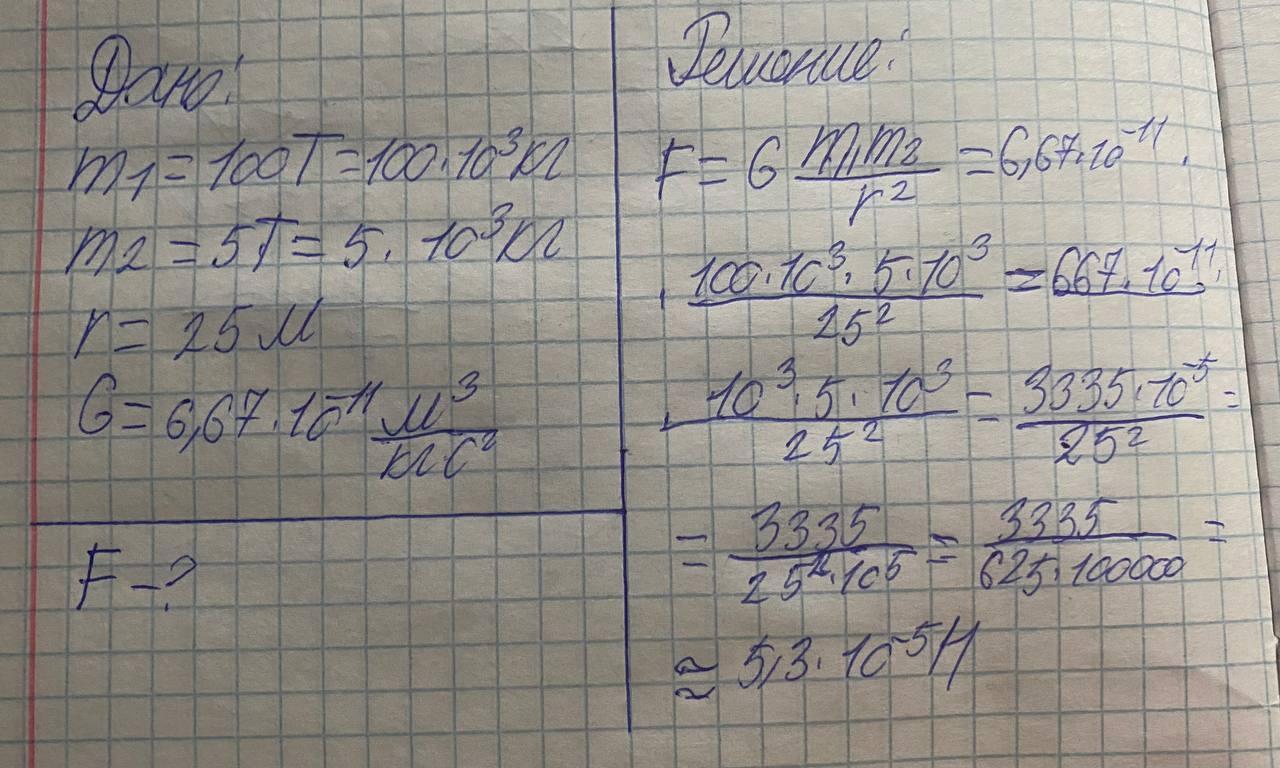 Дано:
m₁ = 100Т = 100·10³кг
m₂ = 5Т = 5·10³кг
r = 25м
G = 6,67·10⁻¹¹ м³/кг с²
F - ?
Решение:
F = G m₁m₂/r² = 6,67·10⁻¹¹ ·
· 100·10³·5·10³/25² = 667·10⁻¹¹·
· 10³·5·10³/25² = 3335·10⁻⁵/25² =
= 3335/25²·10⁵ = 3335/625·100000 =
≈ 5,3·10⁻⁵Н